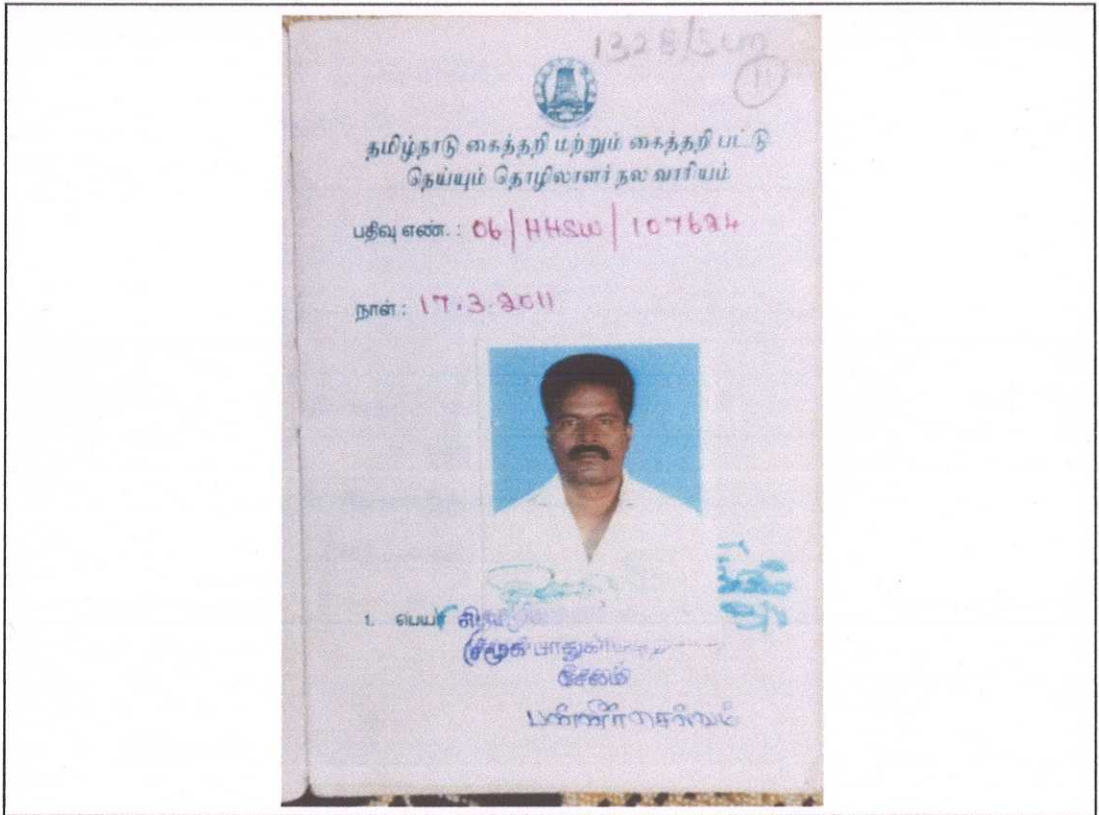 132 B/
11
தமிழ்நாடு கைத்தறி மற்றும் கைத்தறி பட்டு
நெய்யும் தொழிலாளர் நல வாரியம்
பதிவு எண். : 06/HHSW/107624
நாள் : 17.3.2011
1. பெயர்
சேலம்
பன்னீர்செல்வம்